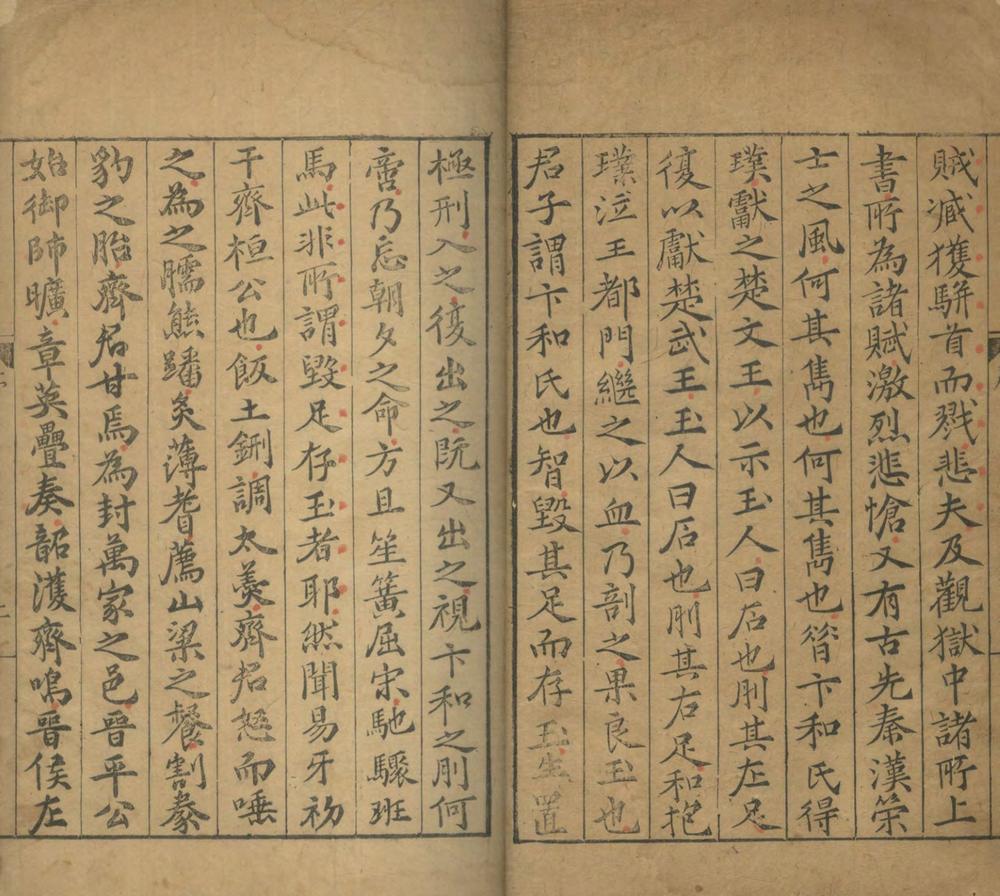 賊滅獲駢首而戮悲夫及觀獄中諸所上
書所為諸賦激烈悲愴又有古先秦漢榮
士之風何其雋也何其雋也管卞和氏得
璞獻之楚文王以示玉人曰石也刖其左足
復以獻楚武王玉人曰石也刖其右足和抱
璞泣王都門繼之以血乃剖之果良玉也
君子謂卞和氏也智毀其足而存玉生置
極刑入之復出之既又出之視卞和之刖何
啻乃忘朝夕之命方且笙簧屈宋馳驟班
馬此非所謂毀足存玉者耶然聞易牙初
干齊桓公也飯土鉶調太羹齊君怒而唾
之為之臑熊蹯炙薄耆薦山梁之餐割豢
豹之胎齊君甘焉為封萬家之邑晉平公
始御師曠章英疊奏韶濩齊鳴晉侯左